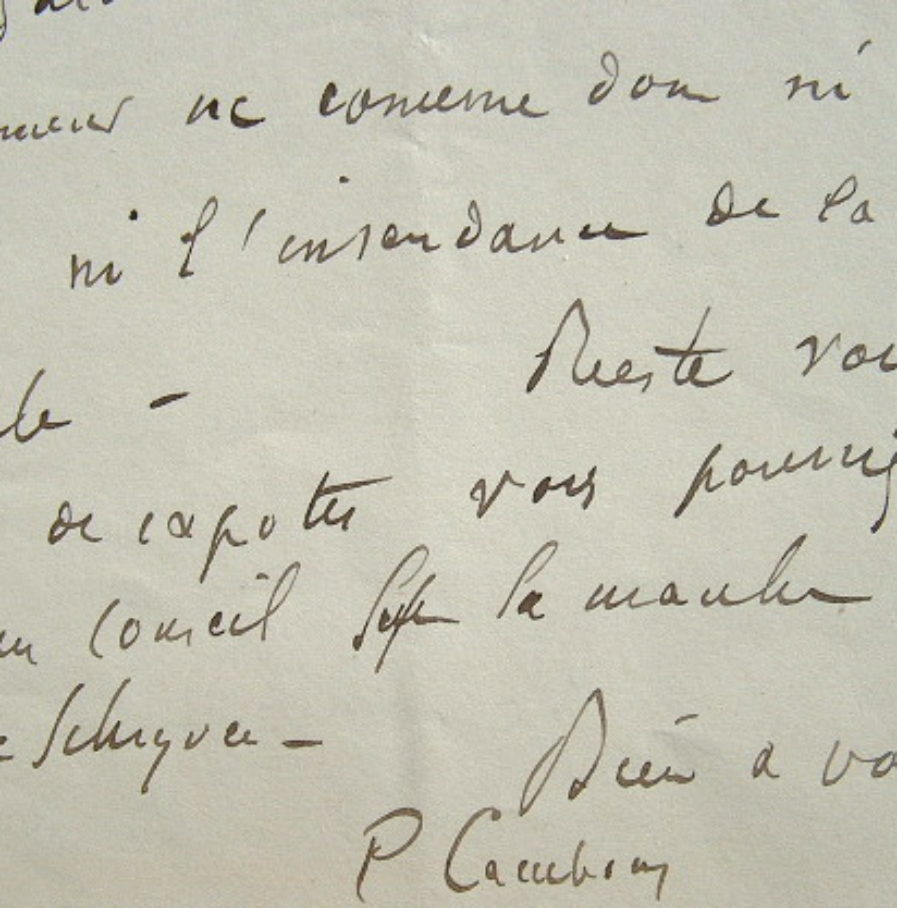 ne concerne donc ni
ni l'intendance de la
Reste vou
de capotes vous pourriez
un Conseil sur la manche
Schryver -
Bien à vo
P Cambon